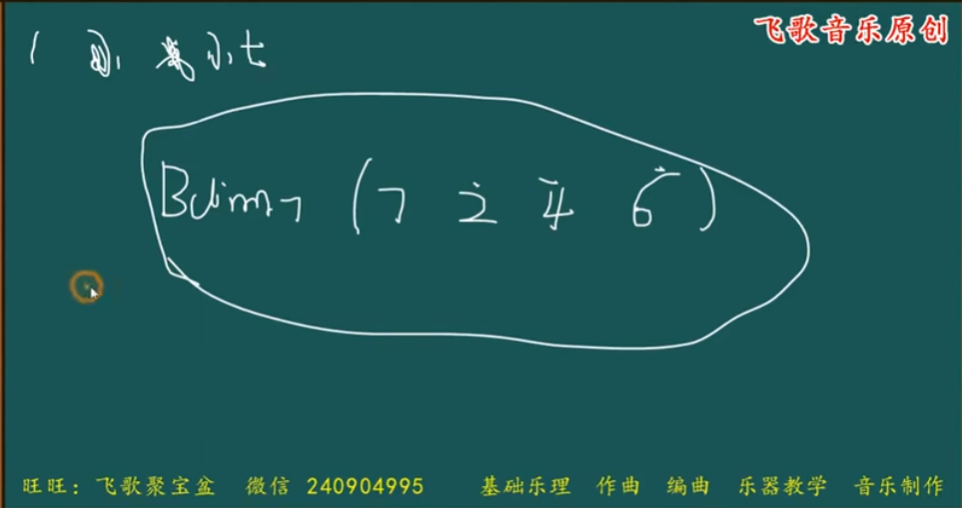 飞歌音乐原创
1 减 小七
Bdim7 (7 2̇ 4̇ 6̇)
旺旺：飞歌聚宝盆 微信 240904995 基础乐理 作曲 编曲 乐器教学 音乐制作